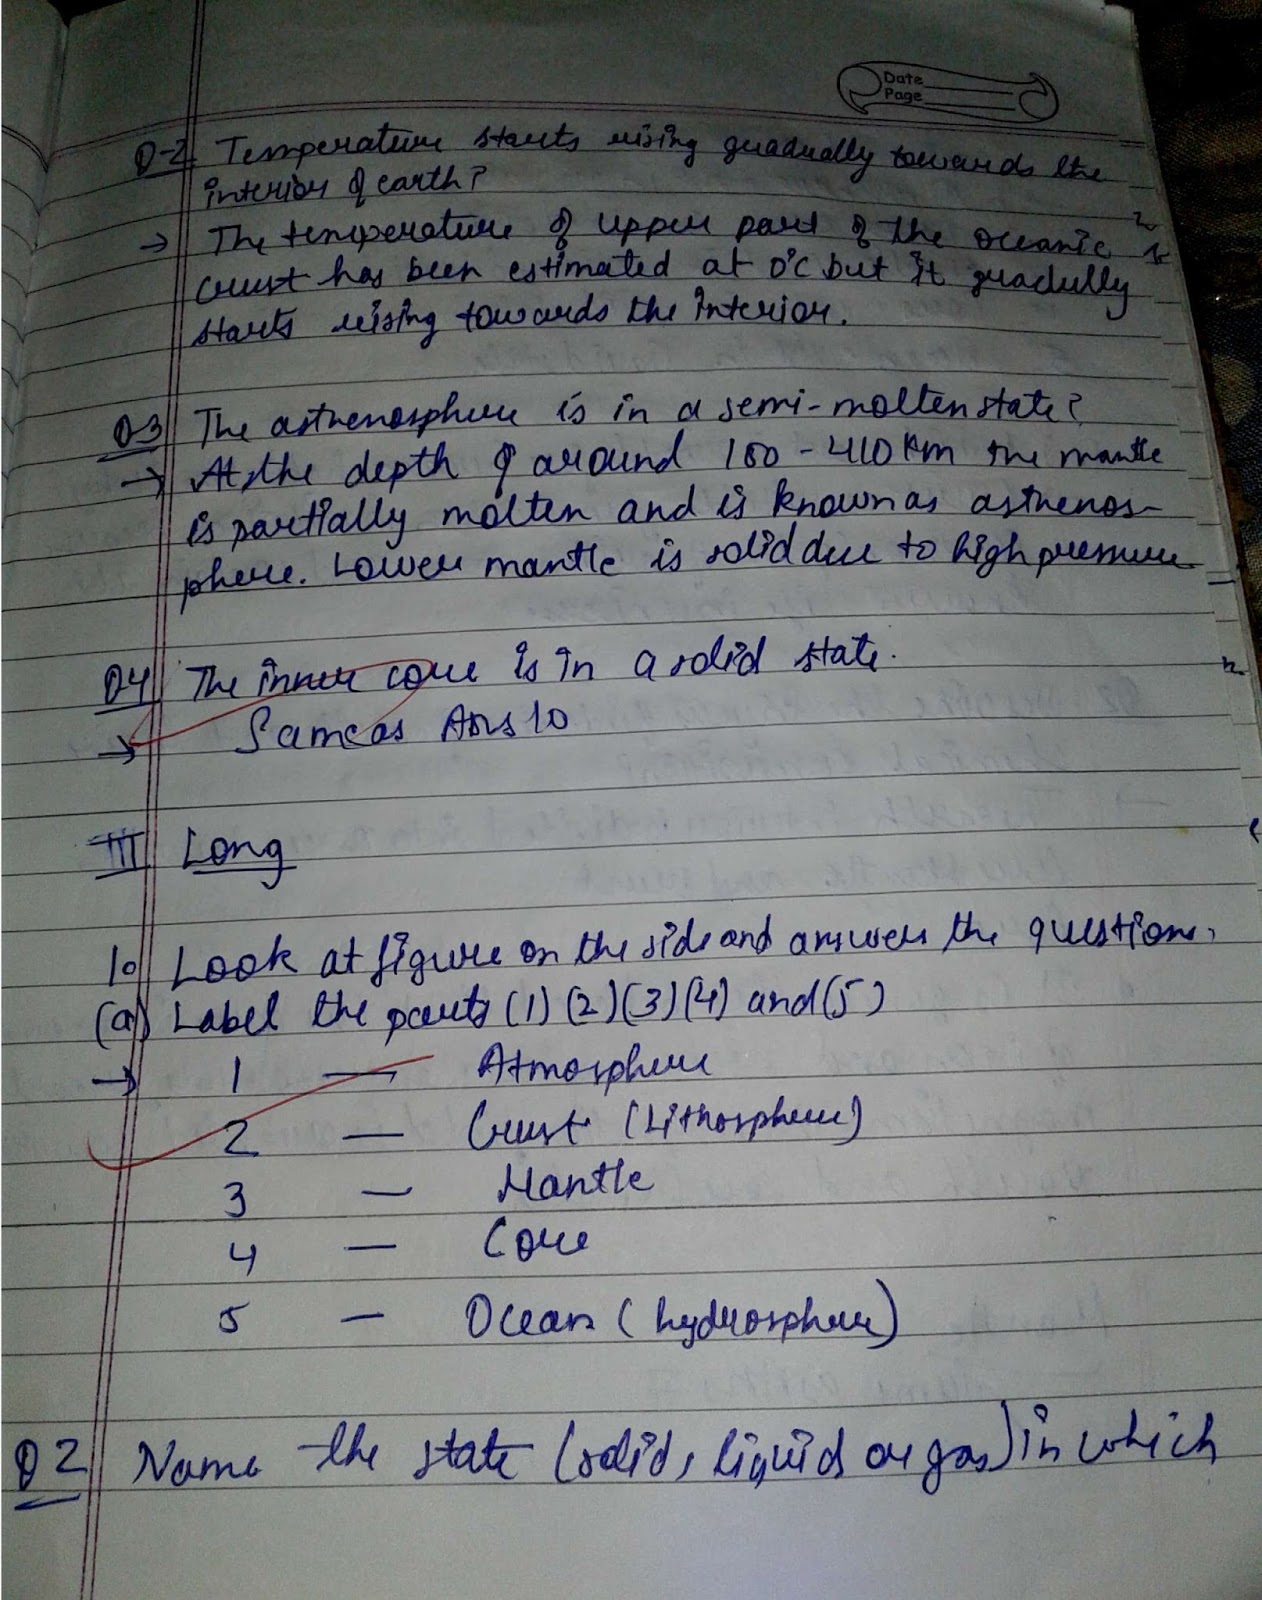 Date
Page
Q-2 Temperature starts rising gradually towards the
interior of earth?
→ The temperature of upper part of the oceanic
crust has been estimated at 0°c but it gradully
starts rising towards the interior.
Q-3 The asthenosphere is in a semi-molten state?
→ At the depth of around 100 - 410 Km the mantle
is partially molten and is known as asthenos-
phere. Lower mantle is solid due to high pressure
Q4 The inner core is in a solid state.
→ Same as Ans 10
III Long
1o Look at figure on the side and answer the questions.
(a) Label the parts (1) (2) (3) (4) and (5)
→ 1 — Atmosphere
2 — Crust (Lithosphere)
3 — Mantle
4 — Core
5 — Ocean (hydrosphere)
Q2 Name the state (solid, liquid or gas) in which